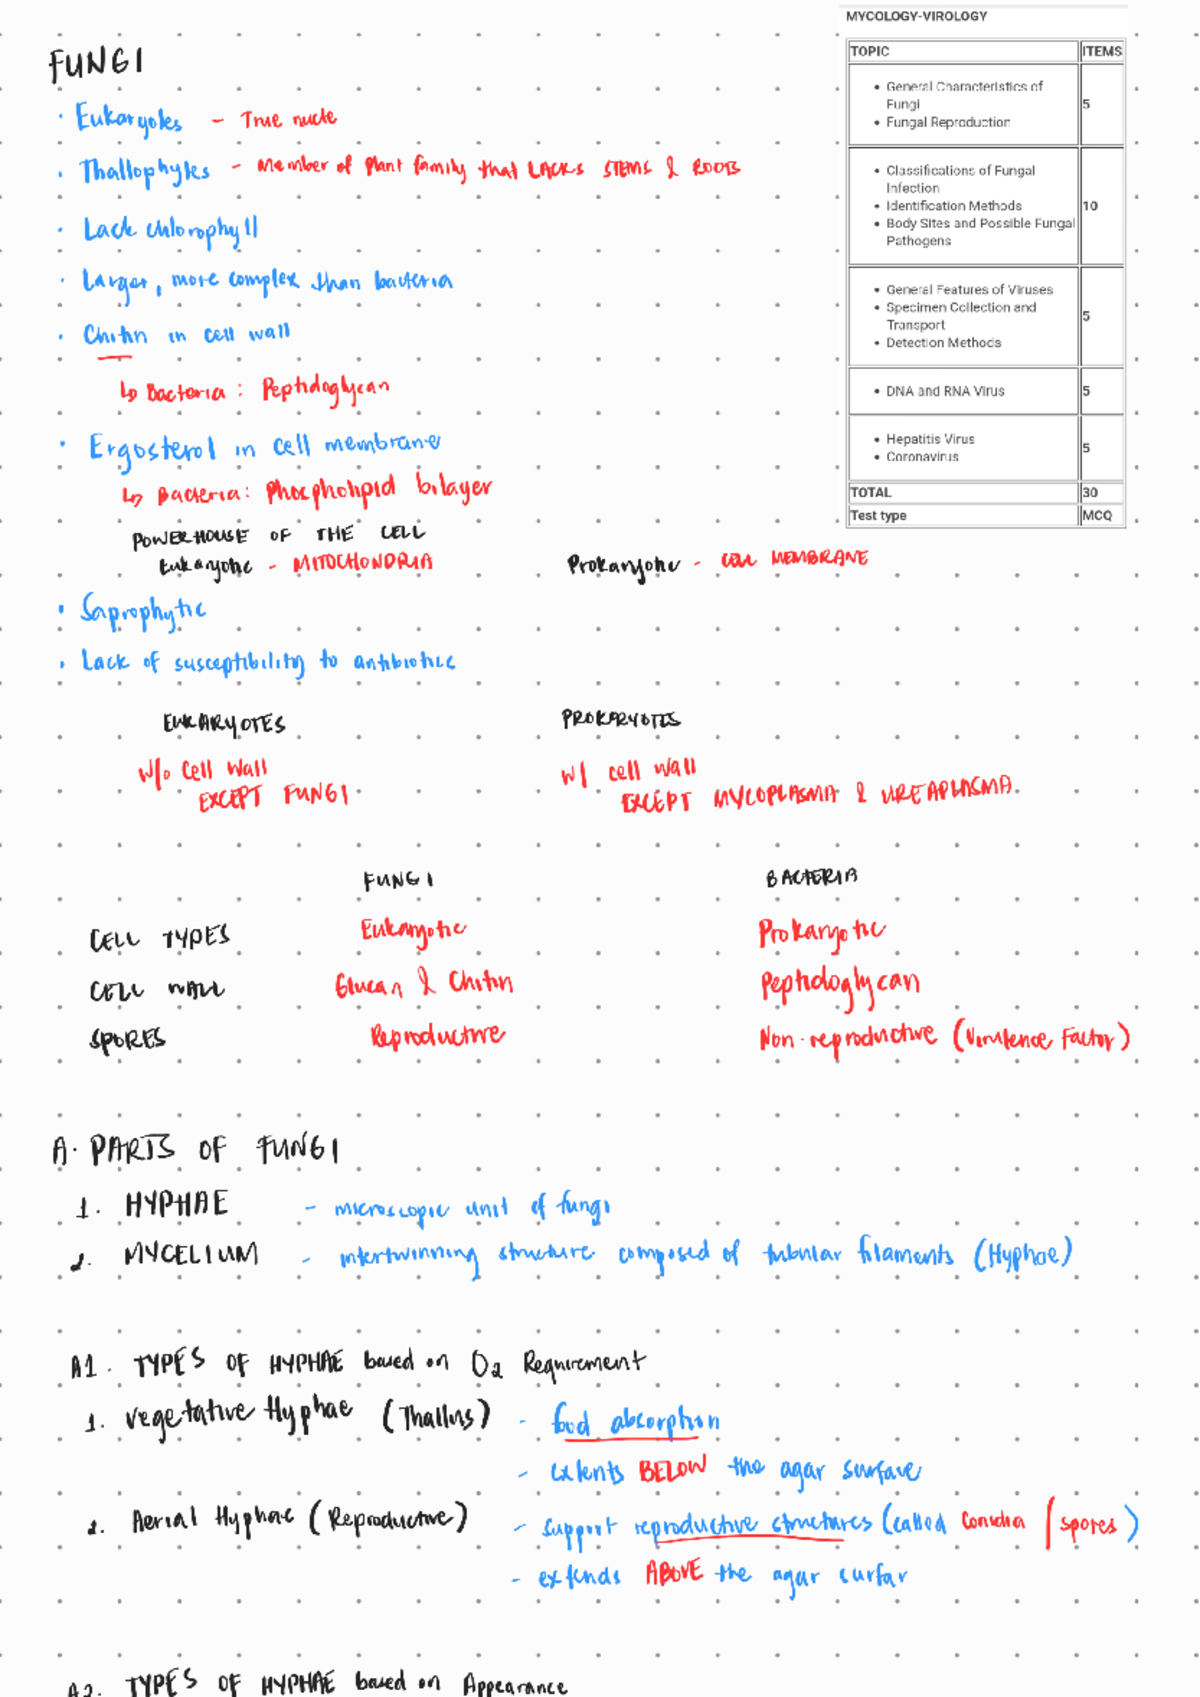 MYCOLOGY-VIROLOGY
TOPIC ITEMS
• General Characteristics of Fungi
• Fungal Reproduction
5
• Classifications of Fungal Infection
• Identification Methods
• Body Sites and Possible Fungal Pathogens
10
• General Features of Viruses
• Specimen Collection and Transport
• Detection Methods
5
• DNA and RNA Virus
5
• Hepatitis Virus
• Coronavirus
5
TOTAL 30
Test type MCQ
FUNGI
· Eukaryotes - True nucle
· Thallophytes - Member of Plant family that LACKS STEMS & ROOTS
· Lack chlorophyll
· Larger, more complex than bacteria
· Chitin in cell wall
↳ Bacteria: Peptidoglycan
· Ergosterol in cell membrane
↳ Bacteria: Phospholipid bilayer
POWERHOUSE OF THE CELL
Eukaryotic - MITOCHONDRIA Prokaryotic - CELL MEMBRANE
· Saprophytic
· Lack of susceptibility to antibiotic
EUKARYOTES PROKARYOTES
w/o Cell Wall w/ cell wall
EXCEPT FUNGI EXCEPT MYCOPLASMA & UREAPLASMA
FUNGI BACTERIA
CELL TYPES Eukaryotic Prokaryotic
CELL WALL Glucan & Chitin Peptidoglycan
SPORES Reproductive Non-reproductive (Virulence Factor)
A. PARTS OF FUNGI
1. HYPHAE - microscopic unit of fungi
2. MYCELIUM - intertwinning structure composed of tubular filaments (Hyphae)
A1. TYPES OF HYPHAE based on O2 Requirement
1. Vegetative Hyphae (Thallus) - food absorption
- extents BELOW the agar surface
2. Aerial Hyphae (Reproductive) - support reproductive structures (called Conidia / spores)
- extends ABOVE the agar surfar
A2. TYPES OF HYPHAE based on Appearance